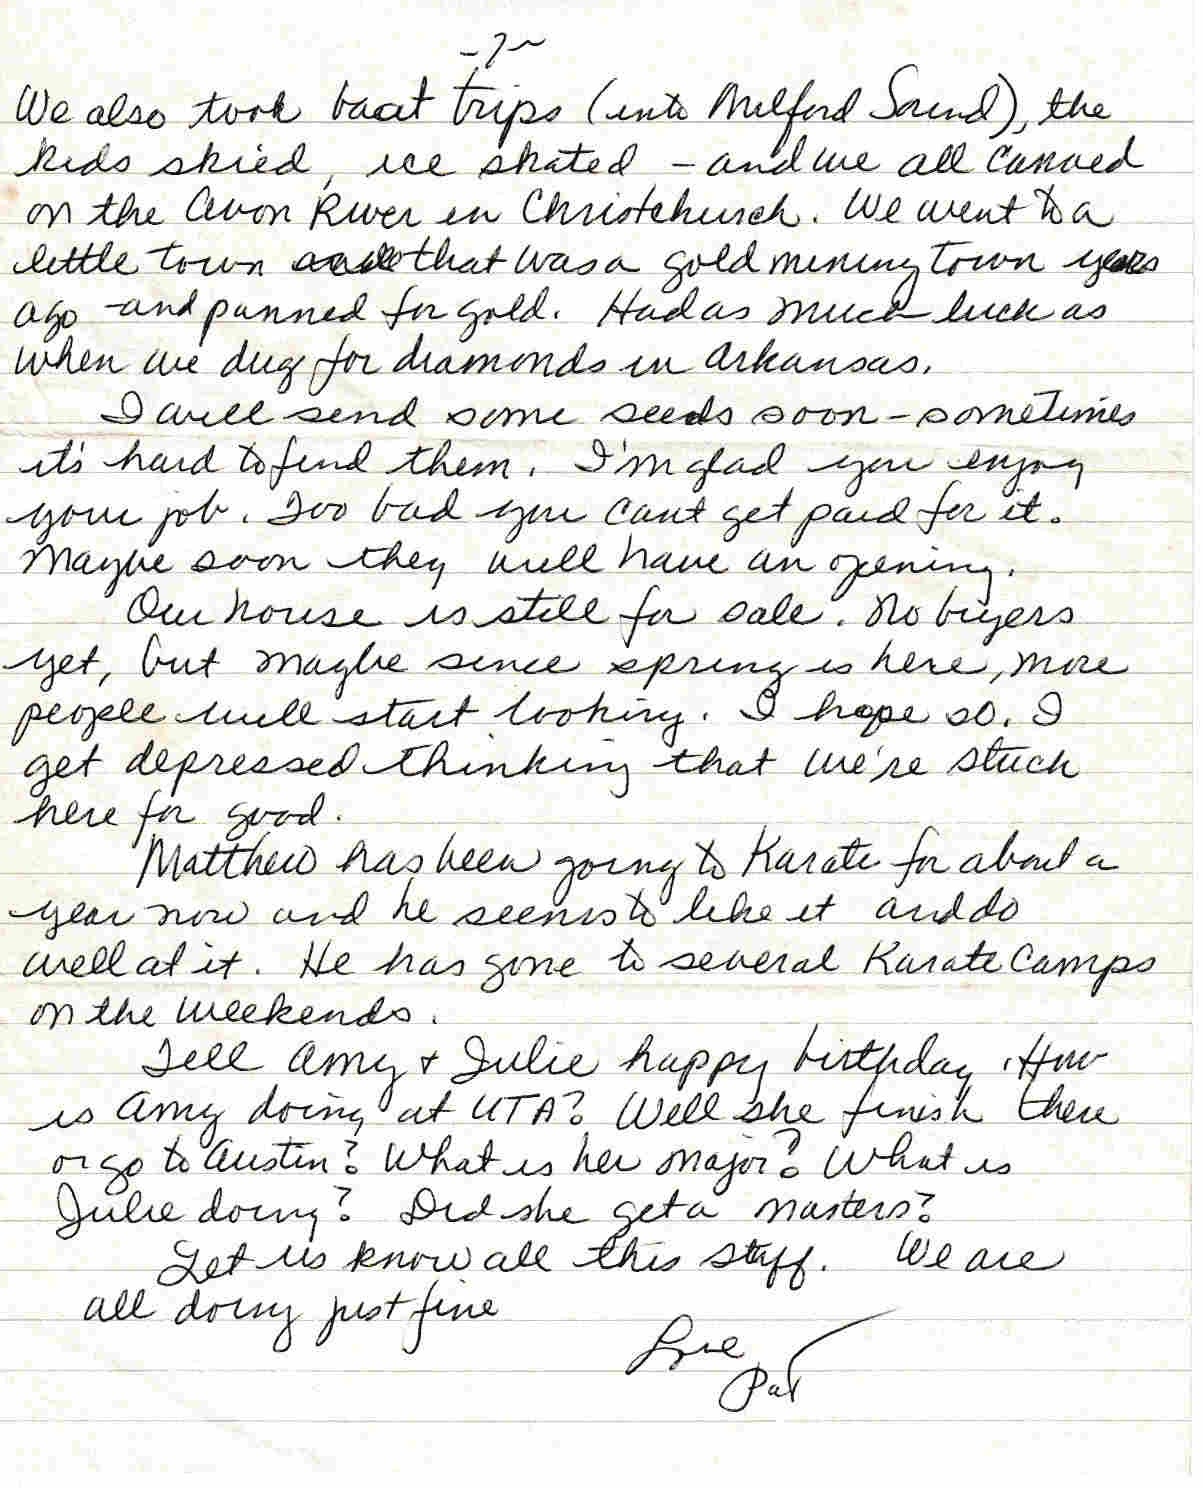 -7-
We also took boat trips (into Milford Sound), the
kids skied, ice skated - and we all canoed
on the Avon River in Christchurch. We went to a
little town that was a gold mining town years
ago - and panned for gold. Had as much luck as
when we dug for diamonds in Arkansas.
I will send some seeds soon - sometimes
it's hard to find them. I'm glad you enjoy
your job. Too bad you cant get paid for it.
Maybe soon they will have an opening.
Our house is still for sale. No buyers
yet, but maybe since spring is here, more
people will start looking. I hope so. I
get depressed thinking that we're stuck
here for good.
Matthew has been going to Karate for about a
year now and he seems to like it and do
well at it. He has gone to several Karate Camps
on the weekends.
Tell Amy + Julie happy birthday. How
is Amy doing at UTA? Will she finish there
or go to Austin? What is her major? What is
Julie doing? Did she get a masters?
Let us know all this stuff. We are
all doing just fine
Love,
Pat